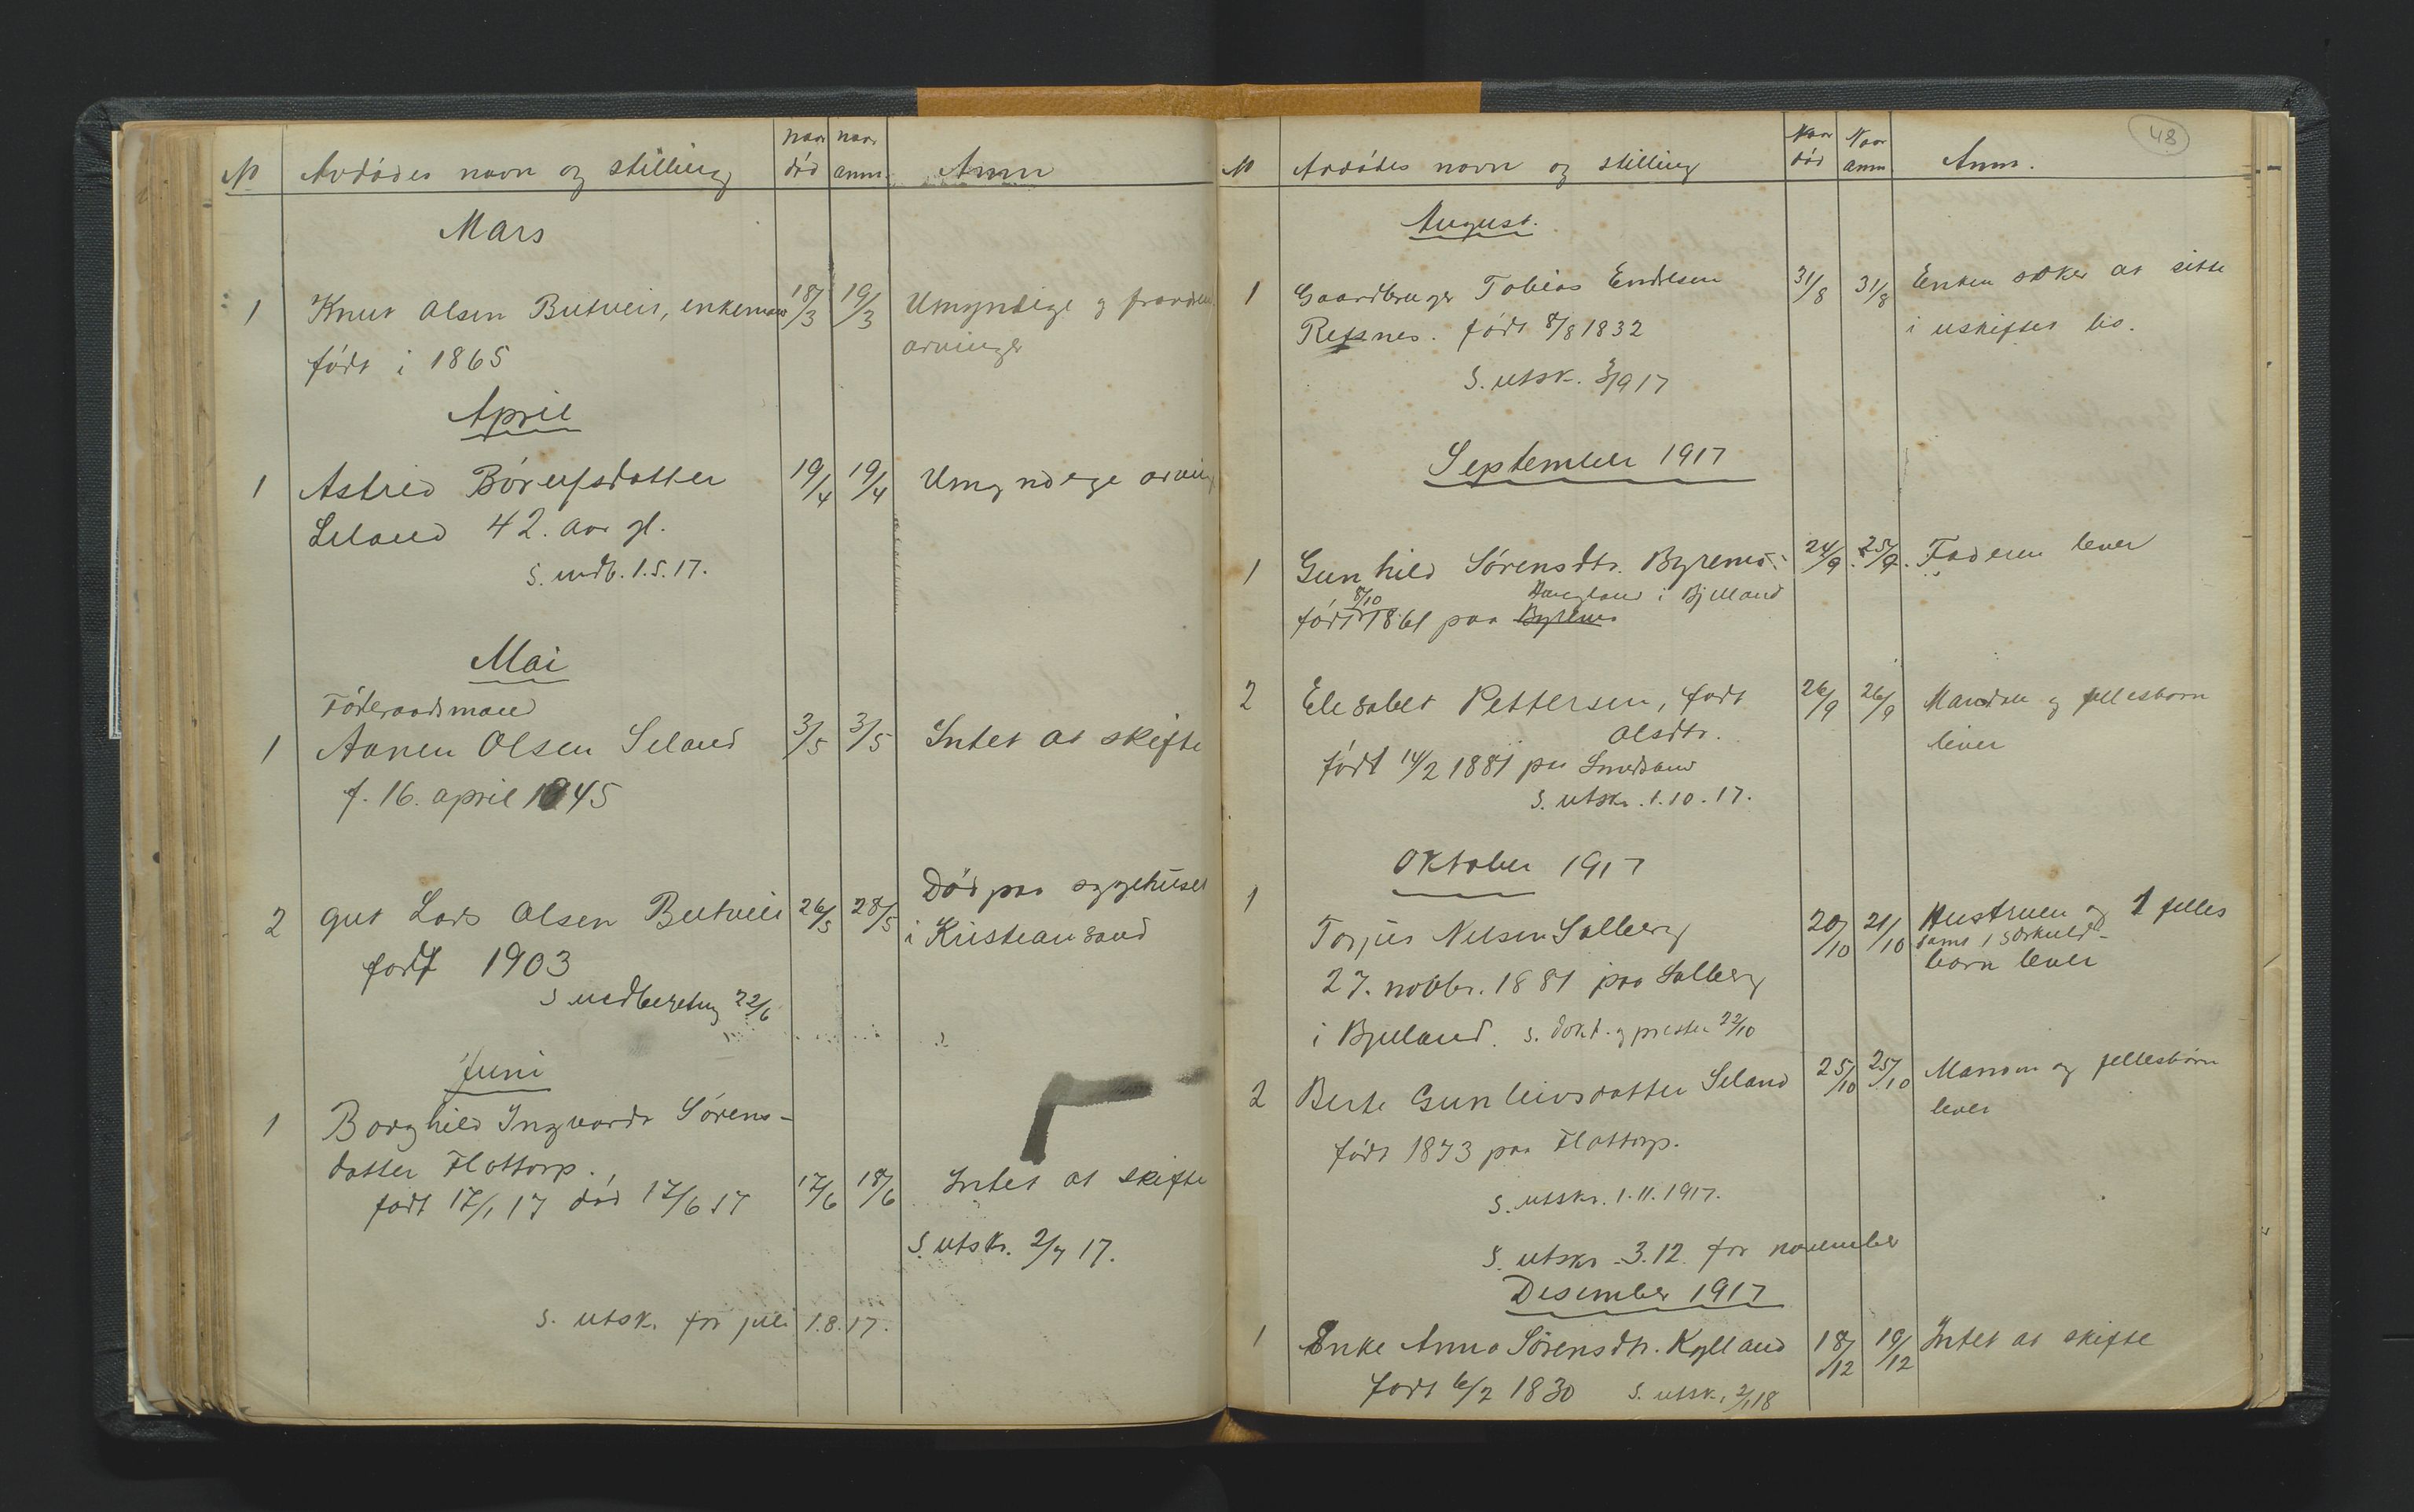 No Avdødes navn og stilling naar død naar anm. Anm
Mars
1 Knut Olsen Butveit, enkemand 18/3 19/3 Umyndige og
født i 1865 arvinger
April
1 Astrid 19/4 19/4 Umyndige
42. aar gl.
S. indb. 1.5.17.
Mai
Føderaadsmand
1 Aanen Olsen Seland 3/5 3/5 Intet at skifte
f. 16. april 1845
2 gut Lars Olsen Butveit 26/5 28/5 Død paa sygehuset
født 1903 i Kristiansand
S 22/6
Juni
1 Borghild Ingvarda Sørens-
datter Flottorp. 17/6 18/6 Intet at skifte
født 17/1 17 død 17/6 17
S. utskr. 2/7 17.
S. utsk. for juli 1.8.17.
48
No Avdødes navn og stilling Naar død Naar anm Anm.
August.
1 Gaardbruger Tobias Endresen 31/8 31/8 Enken søker at sitte
Refsnes. født 8/8 1832 i uskiftet bo.
S. utsk. 3/9 17
September 1917
1 Gunhild Sørensdtr. Byremo. 24/9 25/9. Faderen lever
8/10 i Bjelland
født 1861 paa Byremo
2 Elesabet Pettersen, født 26/9 26/9 Manden og fellesbarn
Olsdtr. lever
født 14/2 1881 paa
S. utskr. 1.10.17.
Oktober 1917
1 Torjus Nilsen Solberg 20/10 21/10 Hustruen og 1 felles
samt 1 særkuld-
27. novbr. 1881 paa Solberg barn lever
i Bjelland. S. dokt. og presten 22/10
2 Berte Gunleivsdatter Seland 25/10 25/10 Mannen og fellesbørn
født 1873 paa Flottorp. lever
S. utskr. 1.11.1917.
S. utskr. 3.12. for november
Desember 1917
1 Enke Anna Sørensdtr. Kylland 18/12 19/12 Intet at skifte
født 6/2 1830 S. utsk. 2/1 18